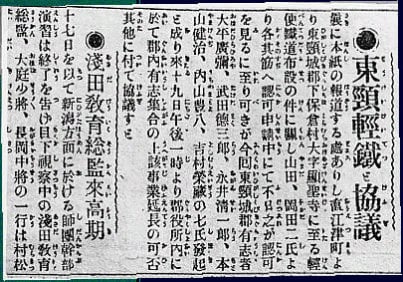 ●東頸輕鐵と協議
曩に本紙の報道する處ありし直江津町よ
り東頸城郡下保倉村大字顯聖寺に至る輕
便鐵道布設の件に關し山田、岡田二氏よ
り各其筋へ認可申請中にて不日之が認可
を見るに至り可きが今回東頸城郡有志者
大平廣彌、武田德三郎、永井淸一郎、本
山健治、內山豊八、吉村榮藏の七氏發起
と成り來十九日午後一時より郡役所內に
於て郡內有志集合の上該事業延長の可否
其他に付て協議すと
●淺田敎育總監來高期
十七日を以て新潟方面に於ける師團幹部
演習は終了を告げ目下視察中の淺田敎育
總監、大庭少將、長岡中將の一行は村松